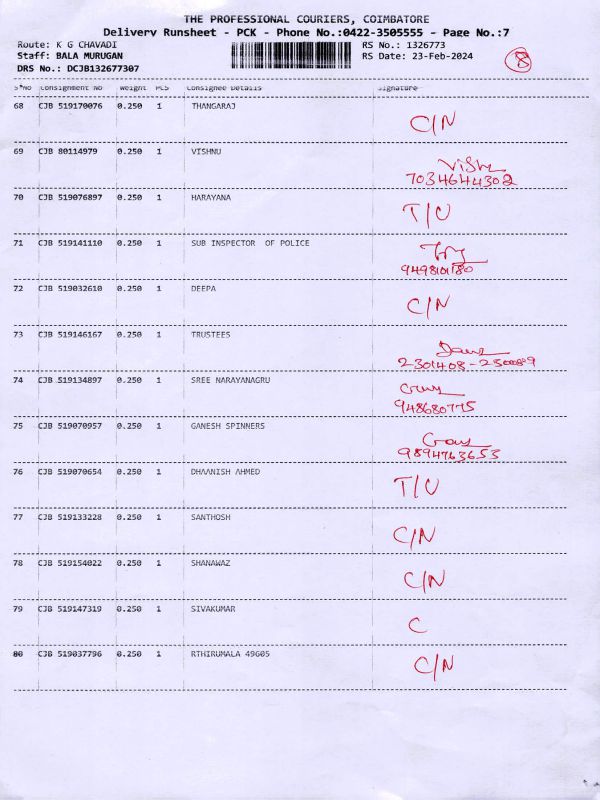 THE PROFESSIONAL COURIERS, COIMBATORE
Delivery Runsheet - PCK - Phone No.:0422-3505555 - Page No.:7
Route: K G CHAVADI RS No.: 1326773
Staff: BALA MURUGAN RS Date: 23-Feb-2024
DRS No.: DCJB132677307
8
S*No Consignment No Weight PCS Consignee Details Signature
68 CJB 519170076 0.250 1 THANGARAJ
C/N
69 CJB 80114979 0.250 1 VISHNU
7034644302
70 CJB 519076897 0.250 1 HARAYANA
T/U
71 CJB 519141110 0.250 1 SUB INSPECTOR OF POLICE
72 CJB 519032610 0.250 1 DEEPA
C/N
73 CJB 519146167 0.250 1 TRUSTEES
74 CJB 519134897 0.250 1 SREE NARAYANAGRU
948680775
75 CJB 519070957 0.250 1 GANESH SPINNERS
9894763653
76 CJB 519070654 0.250 1 DHAANISH AHMED
T/U
77 CJB 519133228 0.250 1 SANTHOSH
C/N
78 CJB 519154022 0.250 1 SHANAWAZ
C/N
79 CJB 519147319 0.250 1 SIVAKUMAR
C
80 CJB 519037796 0.250 1 RTHIRUMALA 49605
C/N